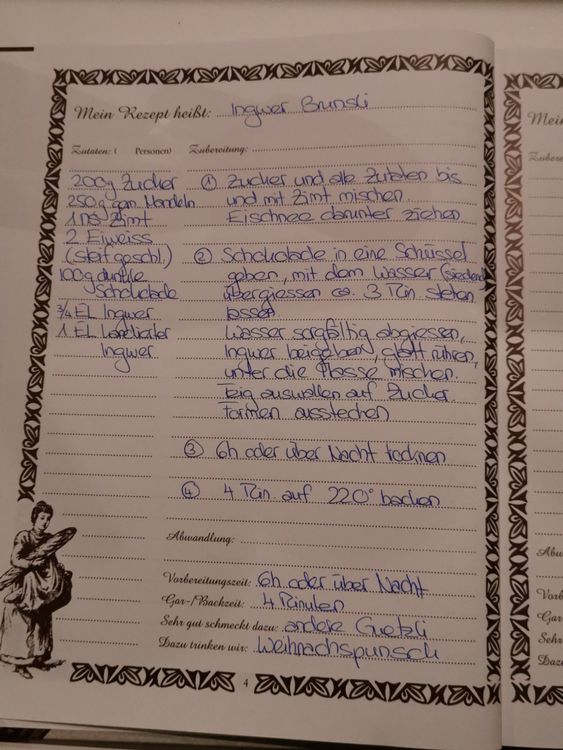 Mein Rezept heißt: Ingwer Brunsli
Zutaten: ( Personen) Zubereitung:
200g Zucker
250g gem. Mandeln
1 Ms Zimt
2 Eiweiss
(steif geschl.)
100g dunkle
Schokolade
3/4 EL Ingwer
1 EL kandierter
Ingwer
① Zucker und alle Zutaten bis
und mit Zimt mischen.
Eischnee darunter ziehen
② Schokolade in eine Schüssel
geben, mit dem Wasser (siedend)
übergiessen ca. 3 Min. stehen
lassen
Wasser sorgfältig abgiessen,
Ingwer beigeben, glatt rühren,
unter die Masse mischen.
Teig auswallen auf Zucker.
Formen ausstechen
③ 6h oder über Nacht trocknen
④ 4 Min auf 220° backen
Abwandlung:
Vorbereitungszeit: 6h oder über Nacht
Gar-/Backzeit: 4 Minuten
Sehr gut schmeckt dazu: andere Guetzli
Dazu trinken wir: Weihnachspunsch
4
Mein
Zuberei
Abw
Vorb
Gar-
Sehr
Dazu